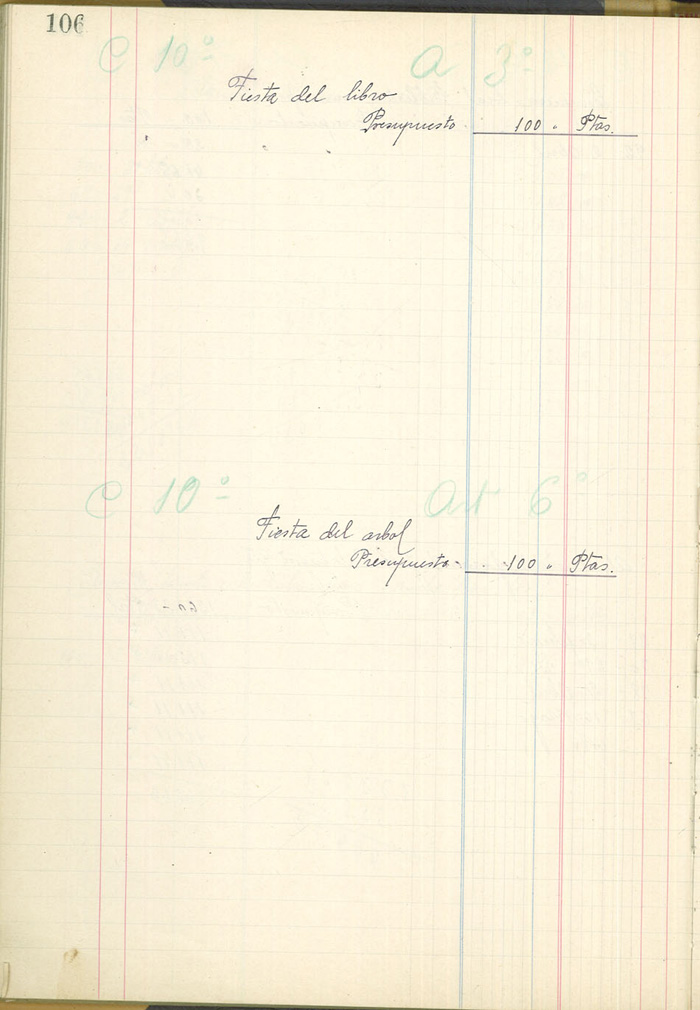 106
C 10º A 3º
Fiesta del libro
Presupuesto 100 " Ptas.
C 10º Art 6º
Fiesta del arbol
Presupuesto - 100 " Ptas.